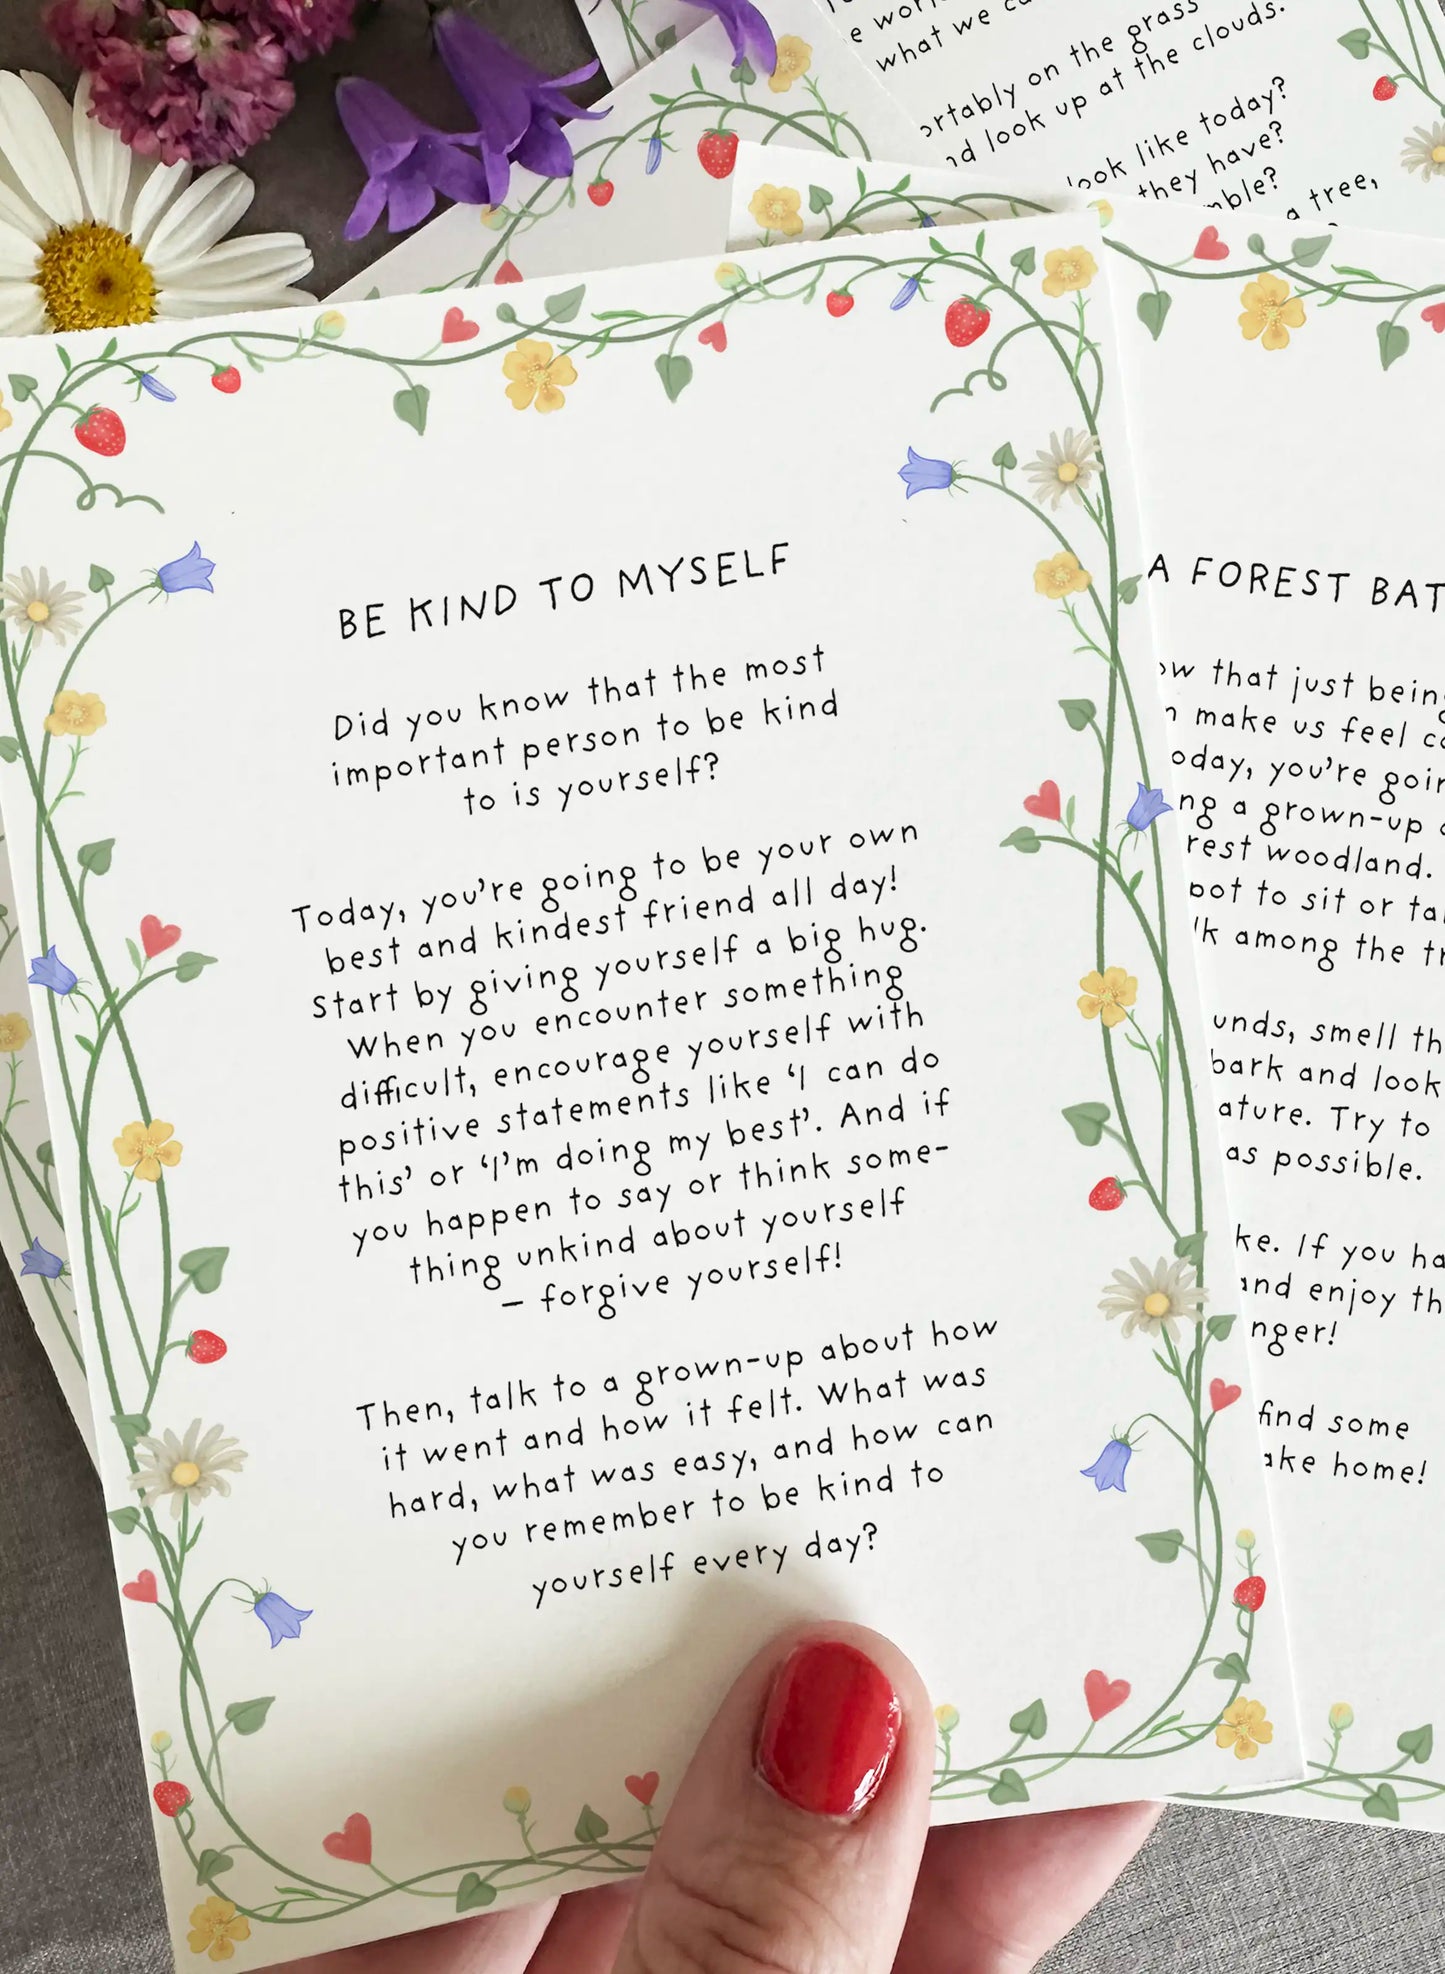 what we
ortably on the grass
nd look up at the clouds.
look like today?
they have?
mble?
a tree,
BE KIND TO MYSELF
Did you know that the most
important person to be kind
to is yourself?
Today, you're going to be your own
best and kindest friend all day!
Start by giving yourself a big hug.
When you encounter something
difficult, encourage yourself with
positive statements like ‘I can do
this’ or ‘I’m doing my best’. And if
you happen to say or think some-
thing unkind about yourself
– forgive yourself!
Then, talk to a grown-up about how
it went and how it felt. What was
hard, what was easy, and how can
you remember to be kind to
yourself every day?
A FOREST BAT
ow that just being
n make us feel ca
oday, you're goin
ng a grown-up
rest woodland.
pot to sit or tal
lk among the tr
unds, smell th
bark and look
ature. Try to
as possible.
ke. If you ha
and enjoy th
nger!
find some
ake home!